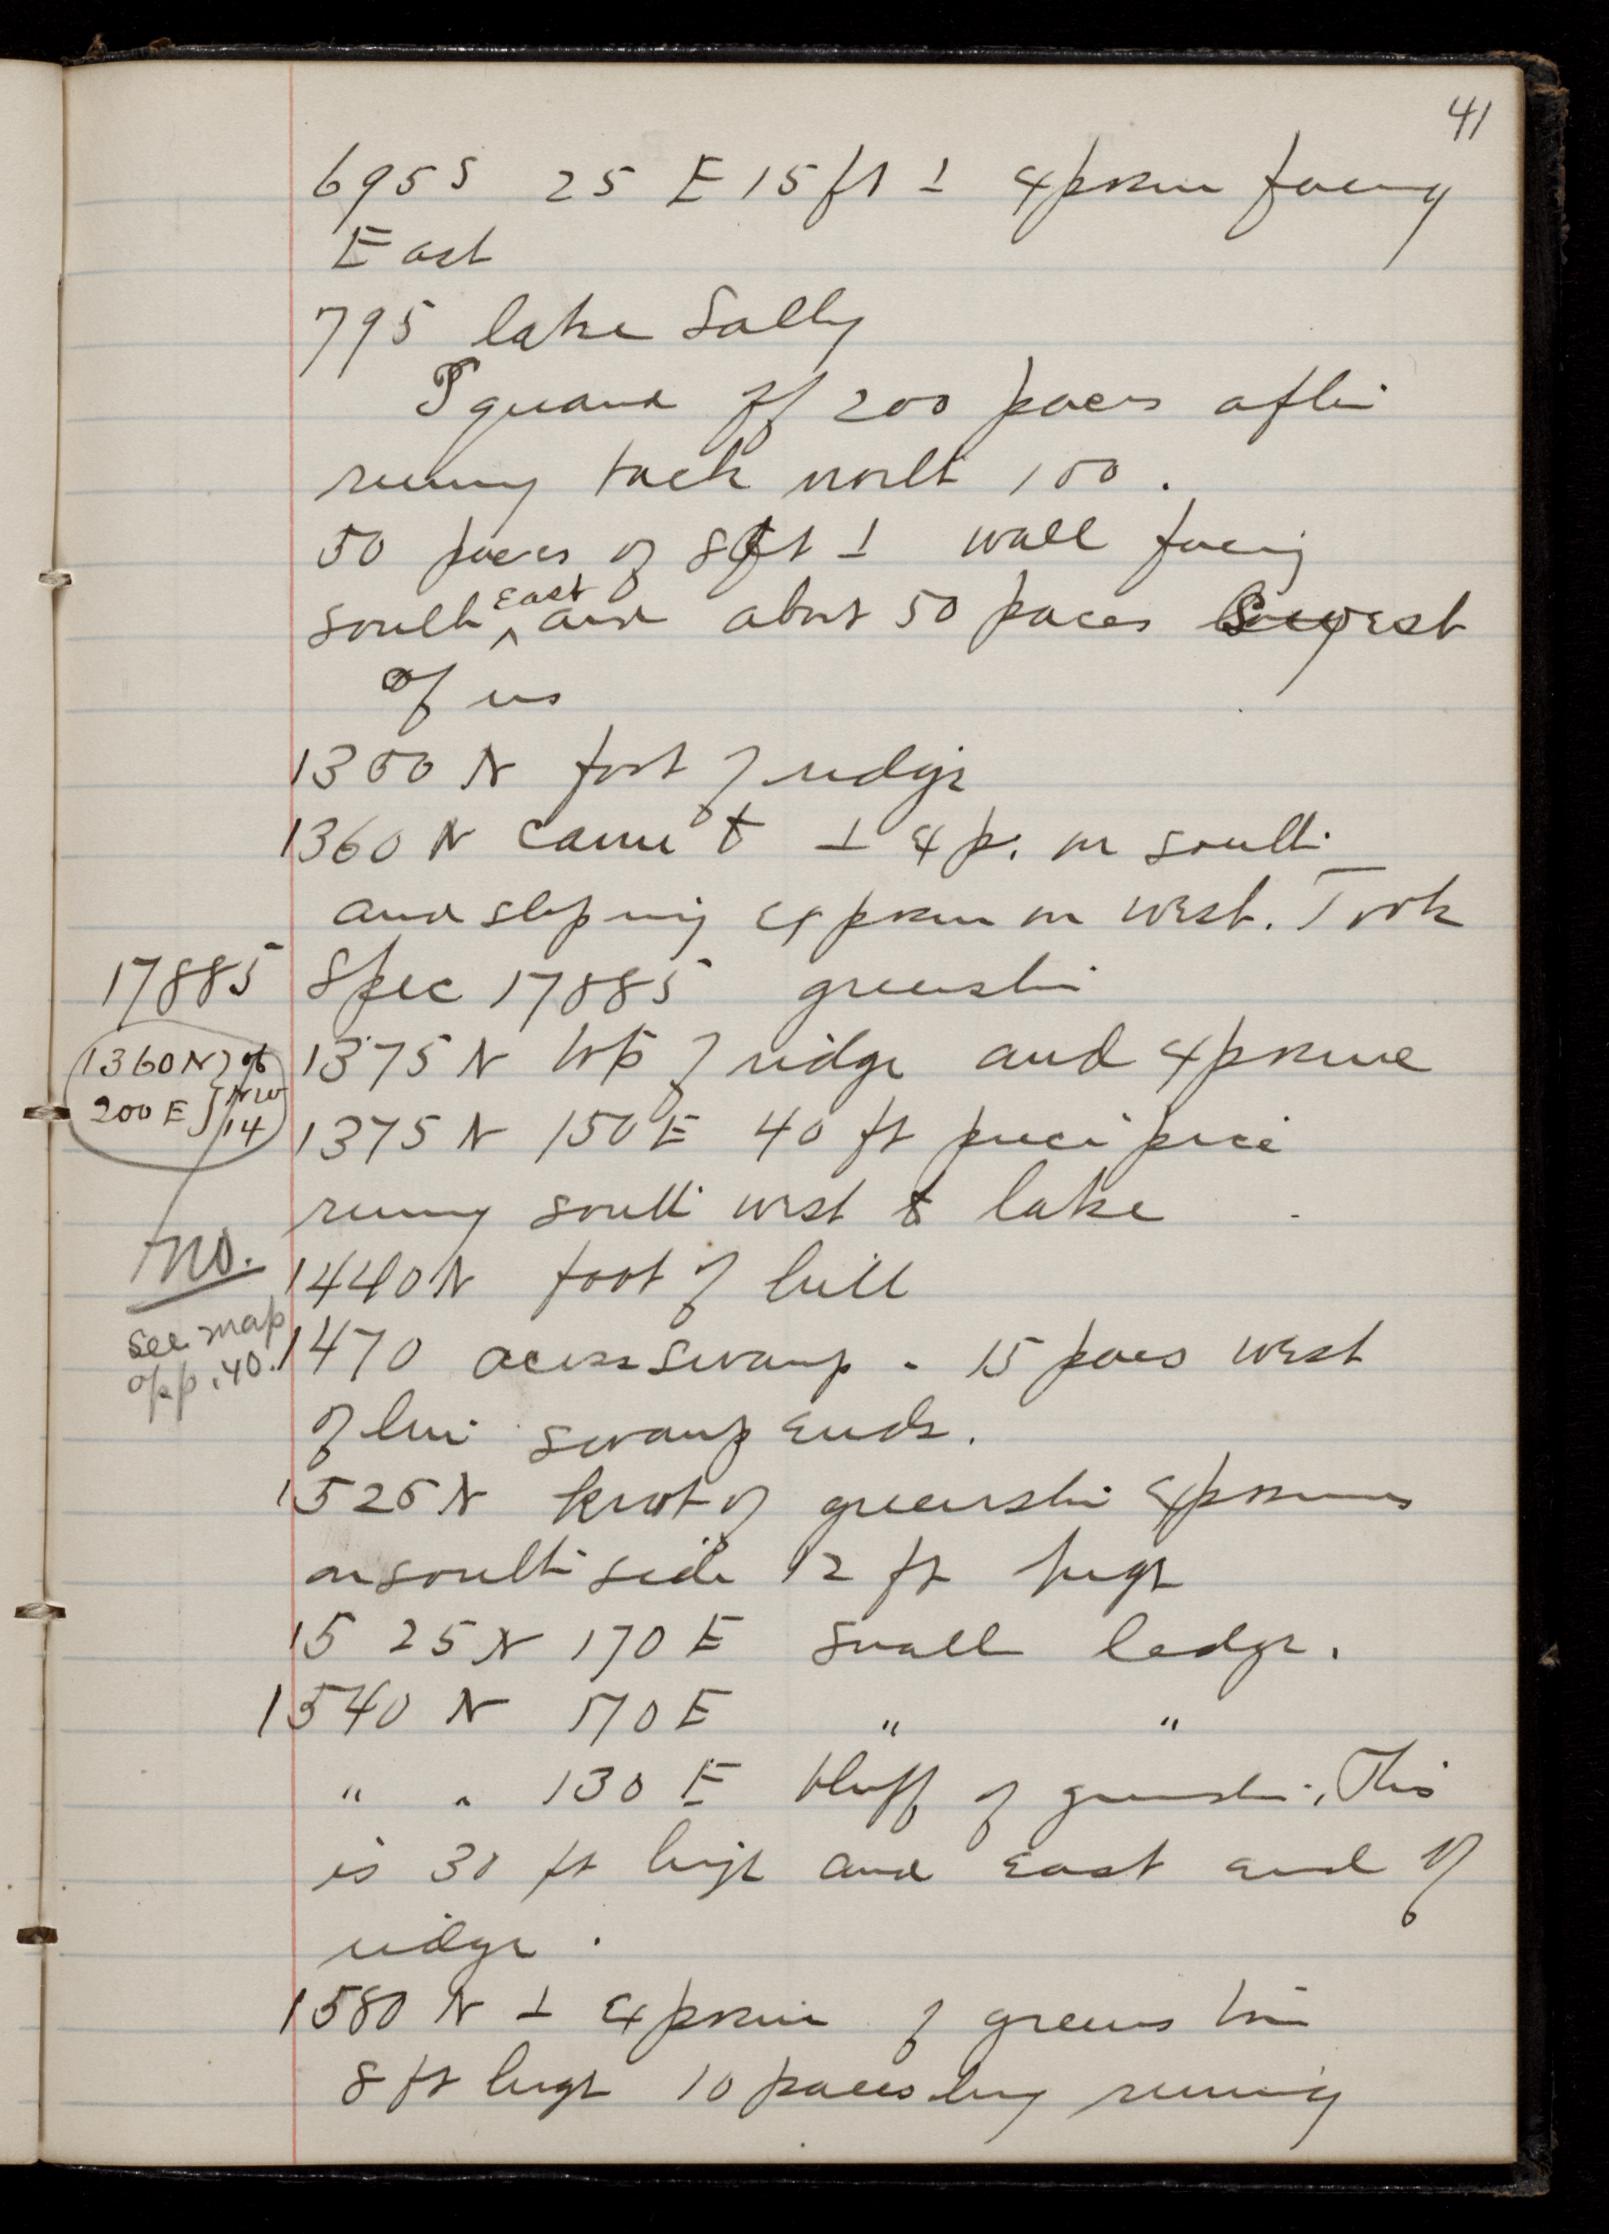 41
695 S 25 E 15 ft ⊥ exposure facing
East
795 lake Sally
Squared off 200 paces after
running back north 100.
50 paces of 80 ft ⊥ wall facing
south east and about 50 paces west
of us
1300 N foot of ridge
1360 N came to ⊥ exp. on south
and sloping exposure on west. Took
17885 Spec 17885 greenstone
1360 N } of NW 14
200 E
1375 N top of ridge and exposure
1375 N 150 E 40 ft precipice
running south west to lake
no.
1440 N foot of hill
see map opp. 40.
1470 across swamp. 15 paces west
of line swamp ends.
1525 N knob of greenstone exposures
on south side 12 ft high
1525 N 170 E small ledge.
1540 N 170 E " "
" " 130 E bluff of greenstone. This
is 30 ft high and east end of
ridge.
1580 N ⊥ exposure of greenstone
8 ft high 10 paces long running